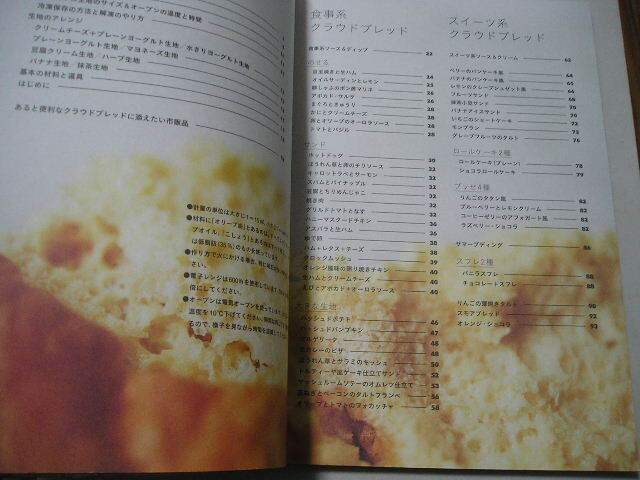 生地のサイズ&オーブンの温度と時間
冷凍保存の方法と解凍のやり方
生地のアレンジ
クリームチーズ+プレーンヨーグルト生地/水きりヨーグルト生地
プレーンヨーグルト生地/マヨネーズ生地
豆腐クリーム生地/ハーブ生地
バナナ生地/抹茶生地
基本の材料と道具
はじめに
あると便利なクラウドブレッドに添えたい市販品
●計量の単位は大さじ1=15ml、
●材料に「オリーブ
プオイル、「こしょう」とあるものは
は低脂肪(35%)のものを使っています。
●作り方で火にかける場合、特に
●電子レンジは600Wを使
倍にしてください。
●オーブンは電気オーブンを使っています。
温度を10℃下げてください。
るので、様子を見ながら時間を調節して
食事系
クラウドブレッド
食事系ソース&ディップ 22
のせる
目玉焼きと生ハム 24
オイルサーディンとレモン 24
豚しゃぶのポン酢マリネ 26
アボカド・サルサ 26
まぐろときゅうり
かにとクリームチーズ
卵とオリーブのオーロラソース 28
トマトとバジル 28
サンド
ホットドッグ 30
ほうれん草と卵のチリソース 30
キャロットラペとサーモン 32
スパムとパイナップル 32
豆腐とちりめんじゃこ
焼き肉
グリルドトマトとなす
ハニーマスタードチキン
アスパラと生ハム
ゆで卵
ハム+レタス+チーズ 38
クロックムッシュ 38
オレンジ風味の照り焼きチキン
生ハムとクリームチーズ 40
えびとアボカド+オーロラソース 40
大きな生地
ハッシュドポテト 46
ハッシュドパンプキン 46
マルゲリータ 47
和カレーのピザ 50
ほうれん草とサラミのキッシュ 50
トルティーヤ風ケーキ仕立てサンド 52
マッシュルームソテーのオムレツ仕立て 53
長ねぎとベーコンのタルトフランベ 56
オリーブとトマトのフォカッチャ 58
スイーツ系
クラウドブレッド
スイーツ系ソース&クリーム 62
ベリーのパンケーキ風 64
バナナのパンケーキ風 65
レモンのクレープシュゼット風 68
フルーツサンド 70
抹茶小豆サンド 70
バナナアイスサンド 74
いちごのショートケーキ 75
モンブラン 76
グレープフルーツのタルト 76
ロールケーキ2種
ロールケーキ(プレーン) 78
ショコラロールケーキ 79
ブッセ4種
りんごのタタン風 82
ブルーベリーとレモンクリーム 82
コーヒーゼリーのアフォガート風 82
ラズベリー・ショコラ 82
サマープディング 86
スフレ2種
バニラスフレ 88
チョコレートスフレ 88
りんごの薄焼きタルト 90
スモアブレッド 92
オレンジ・ショコラ 92